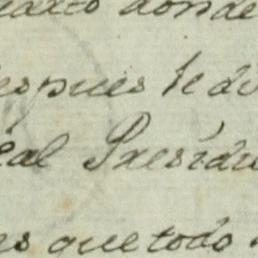 donde
despues te di
eal Presidi
es que todo